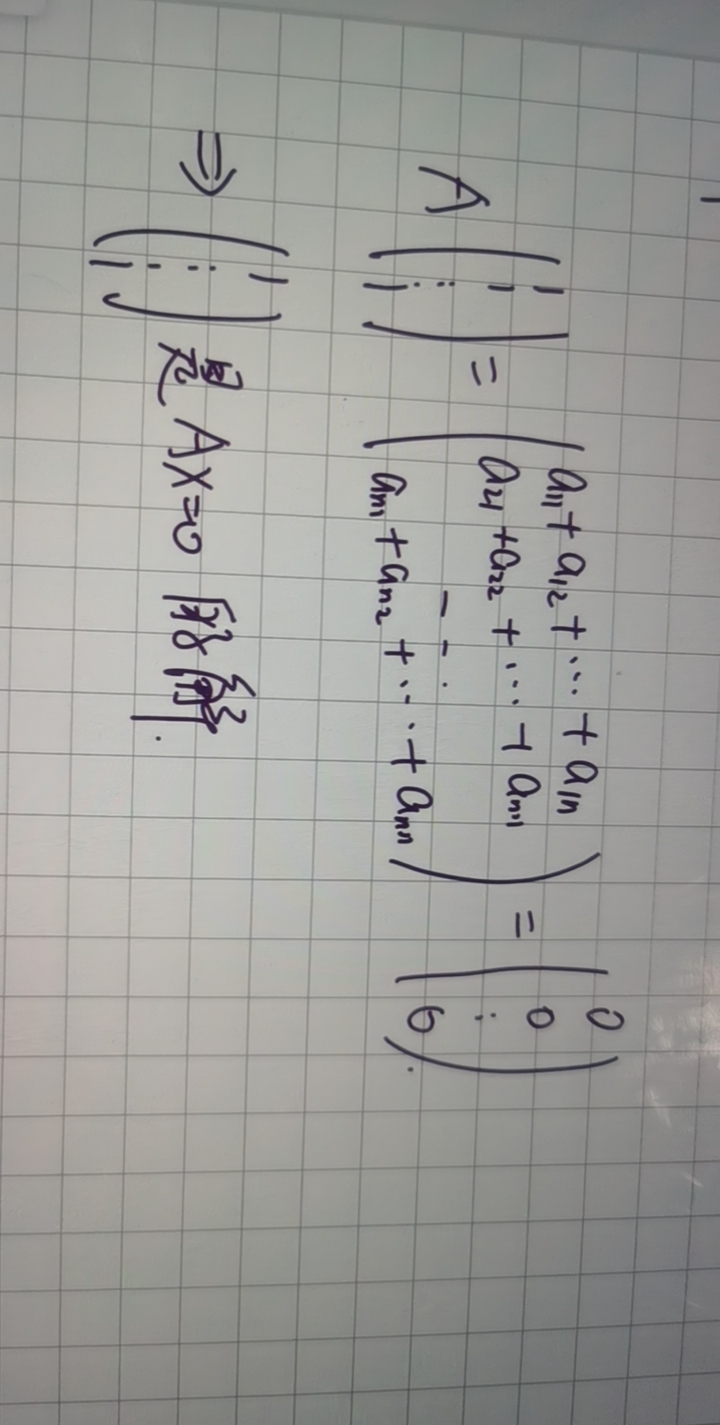 A(1 1 ⋮ 1) = (a11+a12+⋯+a1n
a21+a22+⋯+an1
- - ·
an1+an2+⋯+ann) = (0 0 ⋮ 0).
⇒ (1 ⋮ 1) 是 AX=0 的解.